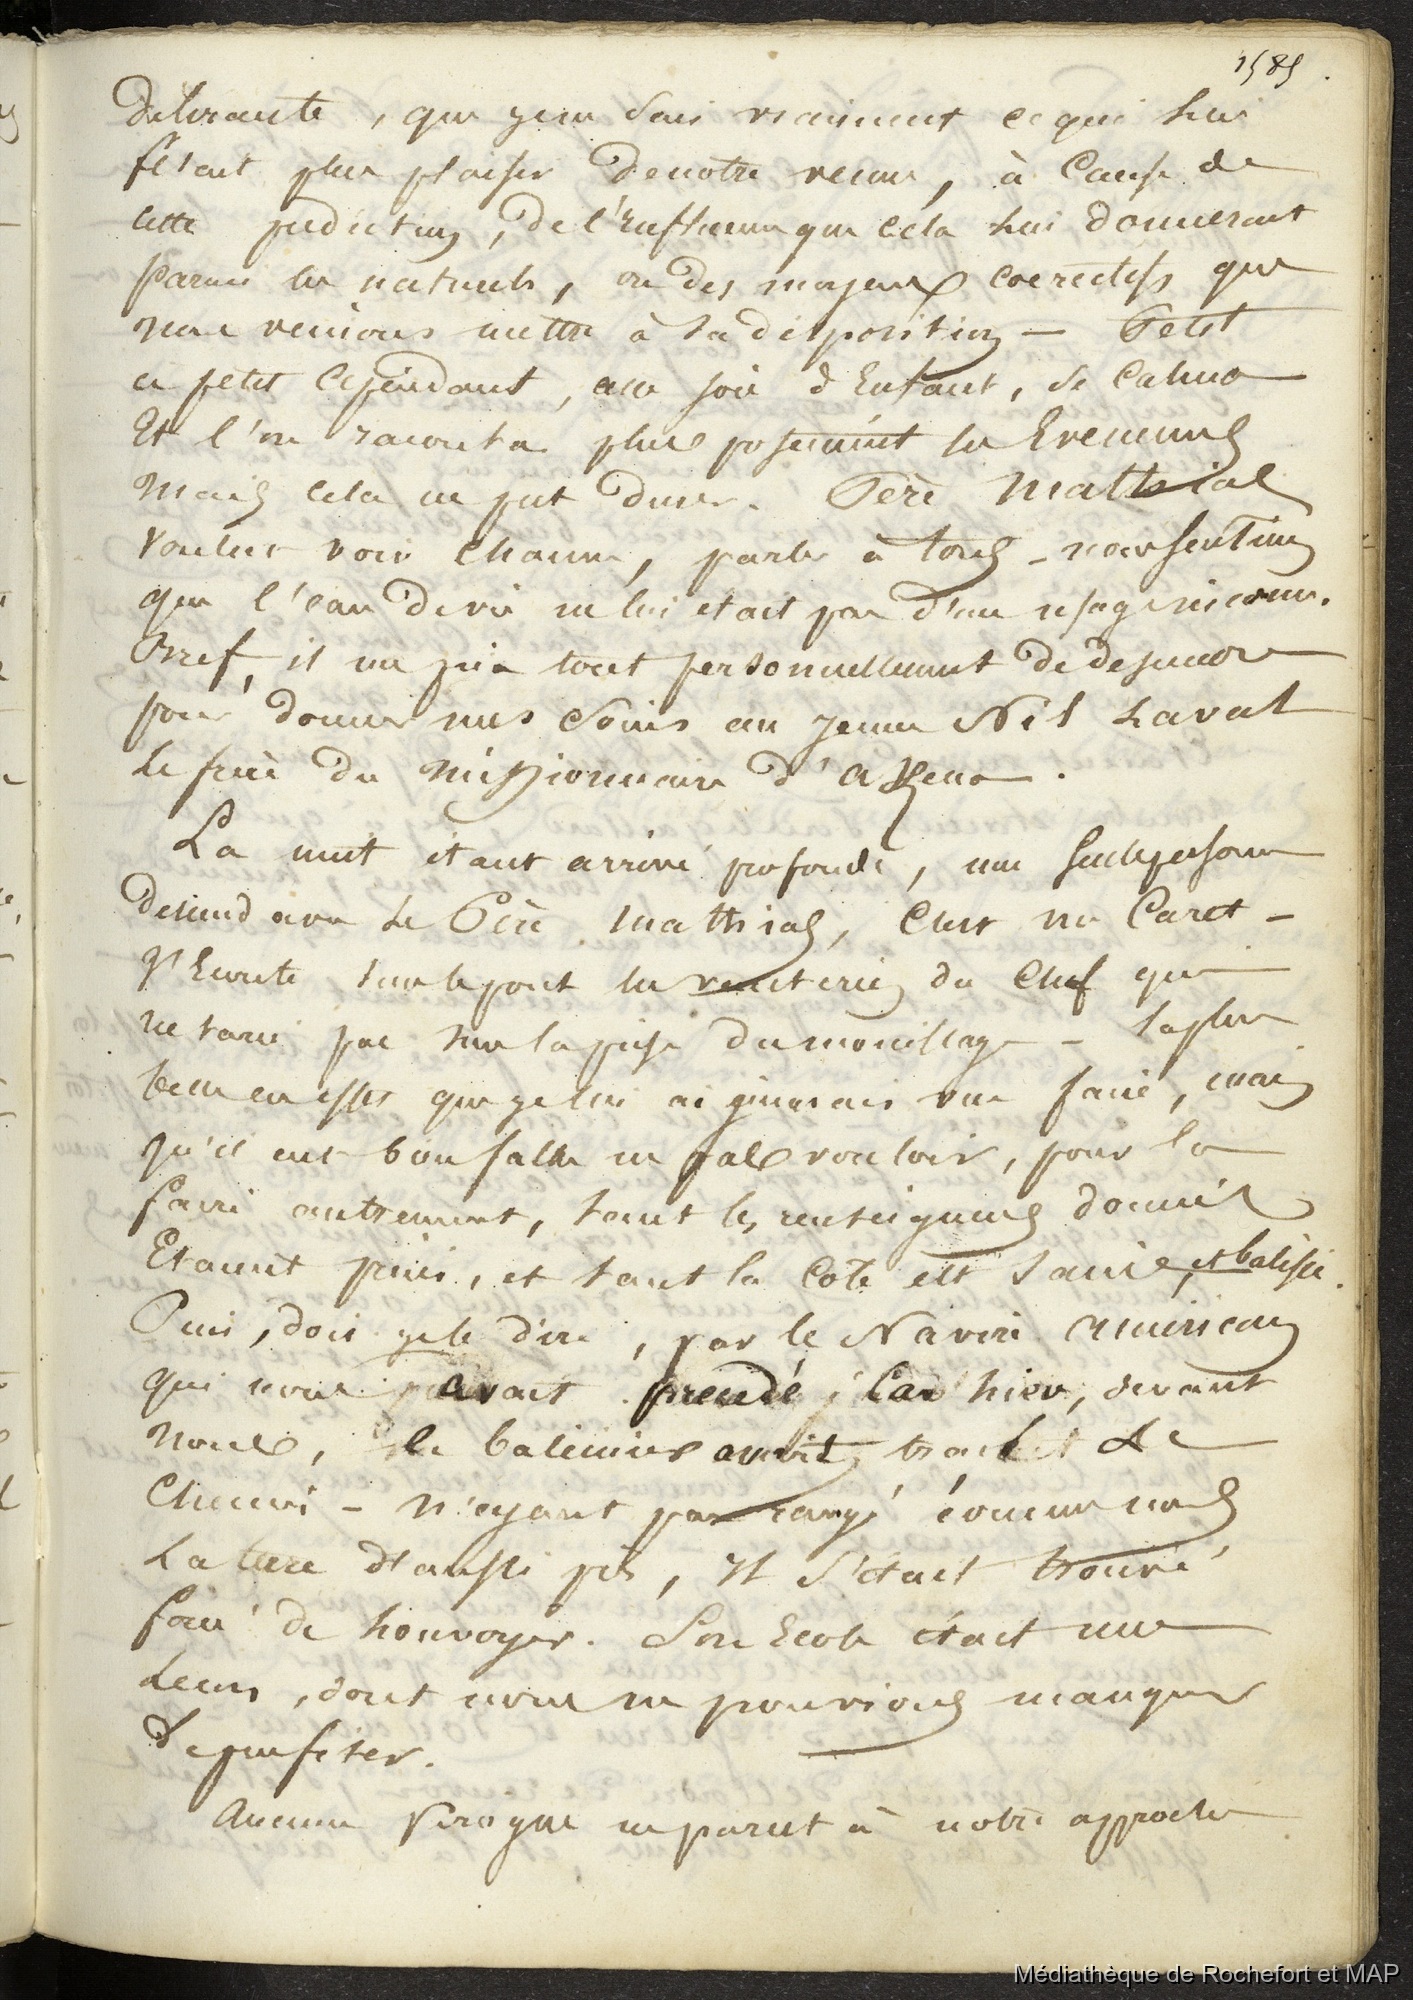 1585.
delirante, que je ne sais vraiment ce qui lui
fesait plus plaisir de notre venue, à cause de
cette prediction, de l'influence que cela lui donnerait
parmi les naturels, ou des moyens coercitifs que
nous venions mettre à sa disposition — Petit
a petit cependant, sa joie d'Enfant, se calma
Et l'on raconta plus posement les Evenements
Mais cela ne put durer. Père Mathias
voulut voir chacun, parler à tous - 
que l'eau de vie ne lui etait pas d'un usage inconnu.
Bref, il me pria tout personnellement de descendre
pour donner mes soins au jeune Nil Laval
Le frère du Missionnaire d'
La nuit étant arrivé profonde, une seule personne
descend avec le Père Mathias, C'est Mr Caret -
J'Ecoute sur le pont les du Chef qui
ne tarit pas sur la prise du mouillage - la plus
belle en effet que je lui ai jamais vue faire, mais
qu'il eut bien fallu ne pas vouloir, pour la
faire autrement, tant les renseignements donnés
Etaient précis, et tant la Côte est saine, et balisée.
Puis, dois je le dire, par le Navire Américain
qui nous avait précédé; Car hier, devant
nous, le baleinier avait tracé le
Chemin - N'ayant pas rangé comme nous
La terre d'aussi près, Il s'était trouvé
forcé de louvoyer. Son Ecole était une
Leçon, dont nous ne pouvions manquer
de profiter.
Aucune Pirogue ne parut à notre approche
Médiathèque de Rochefort et MAP